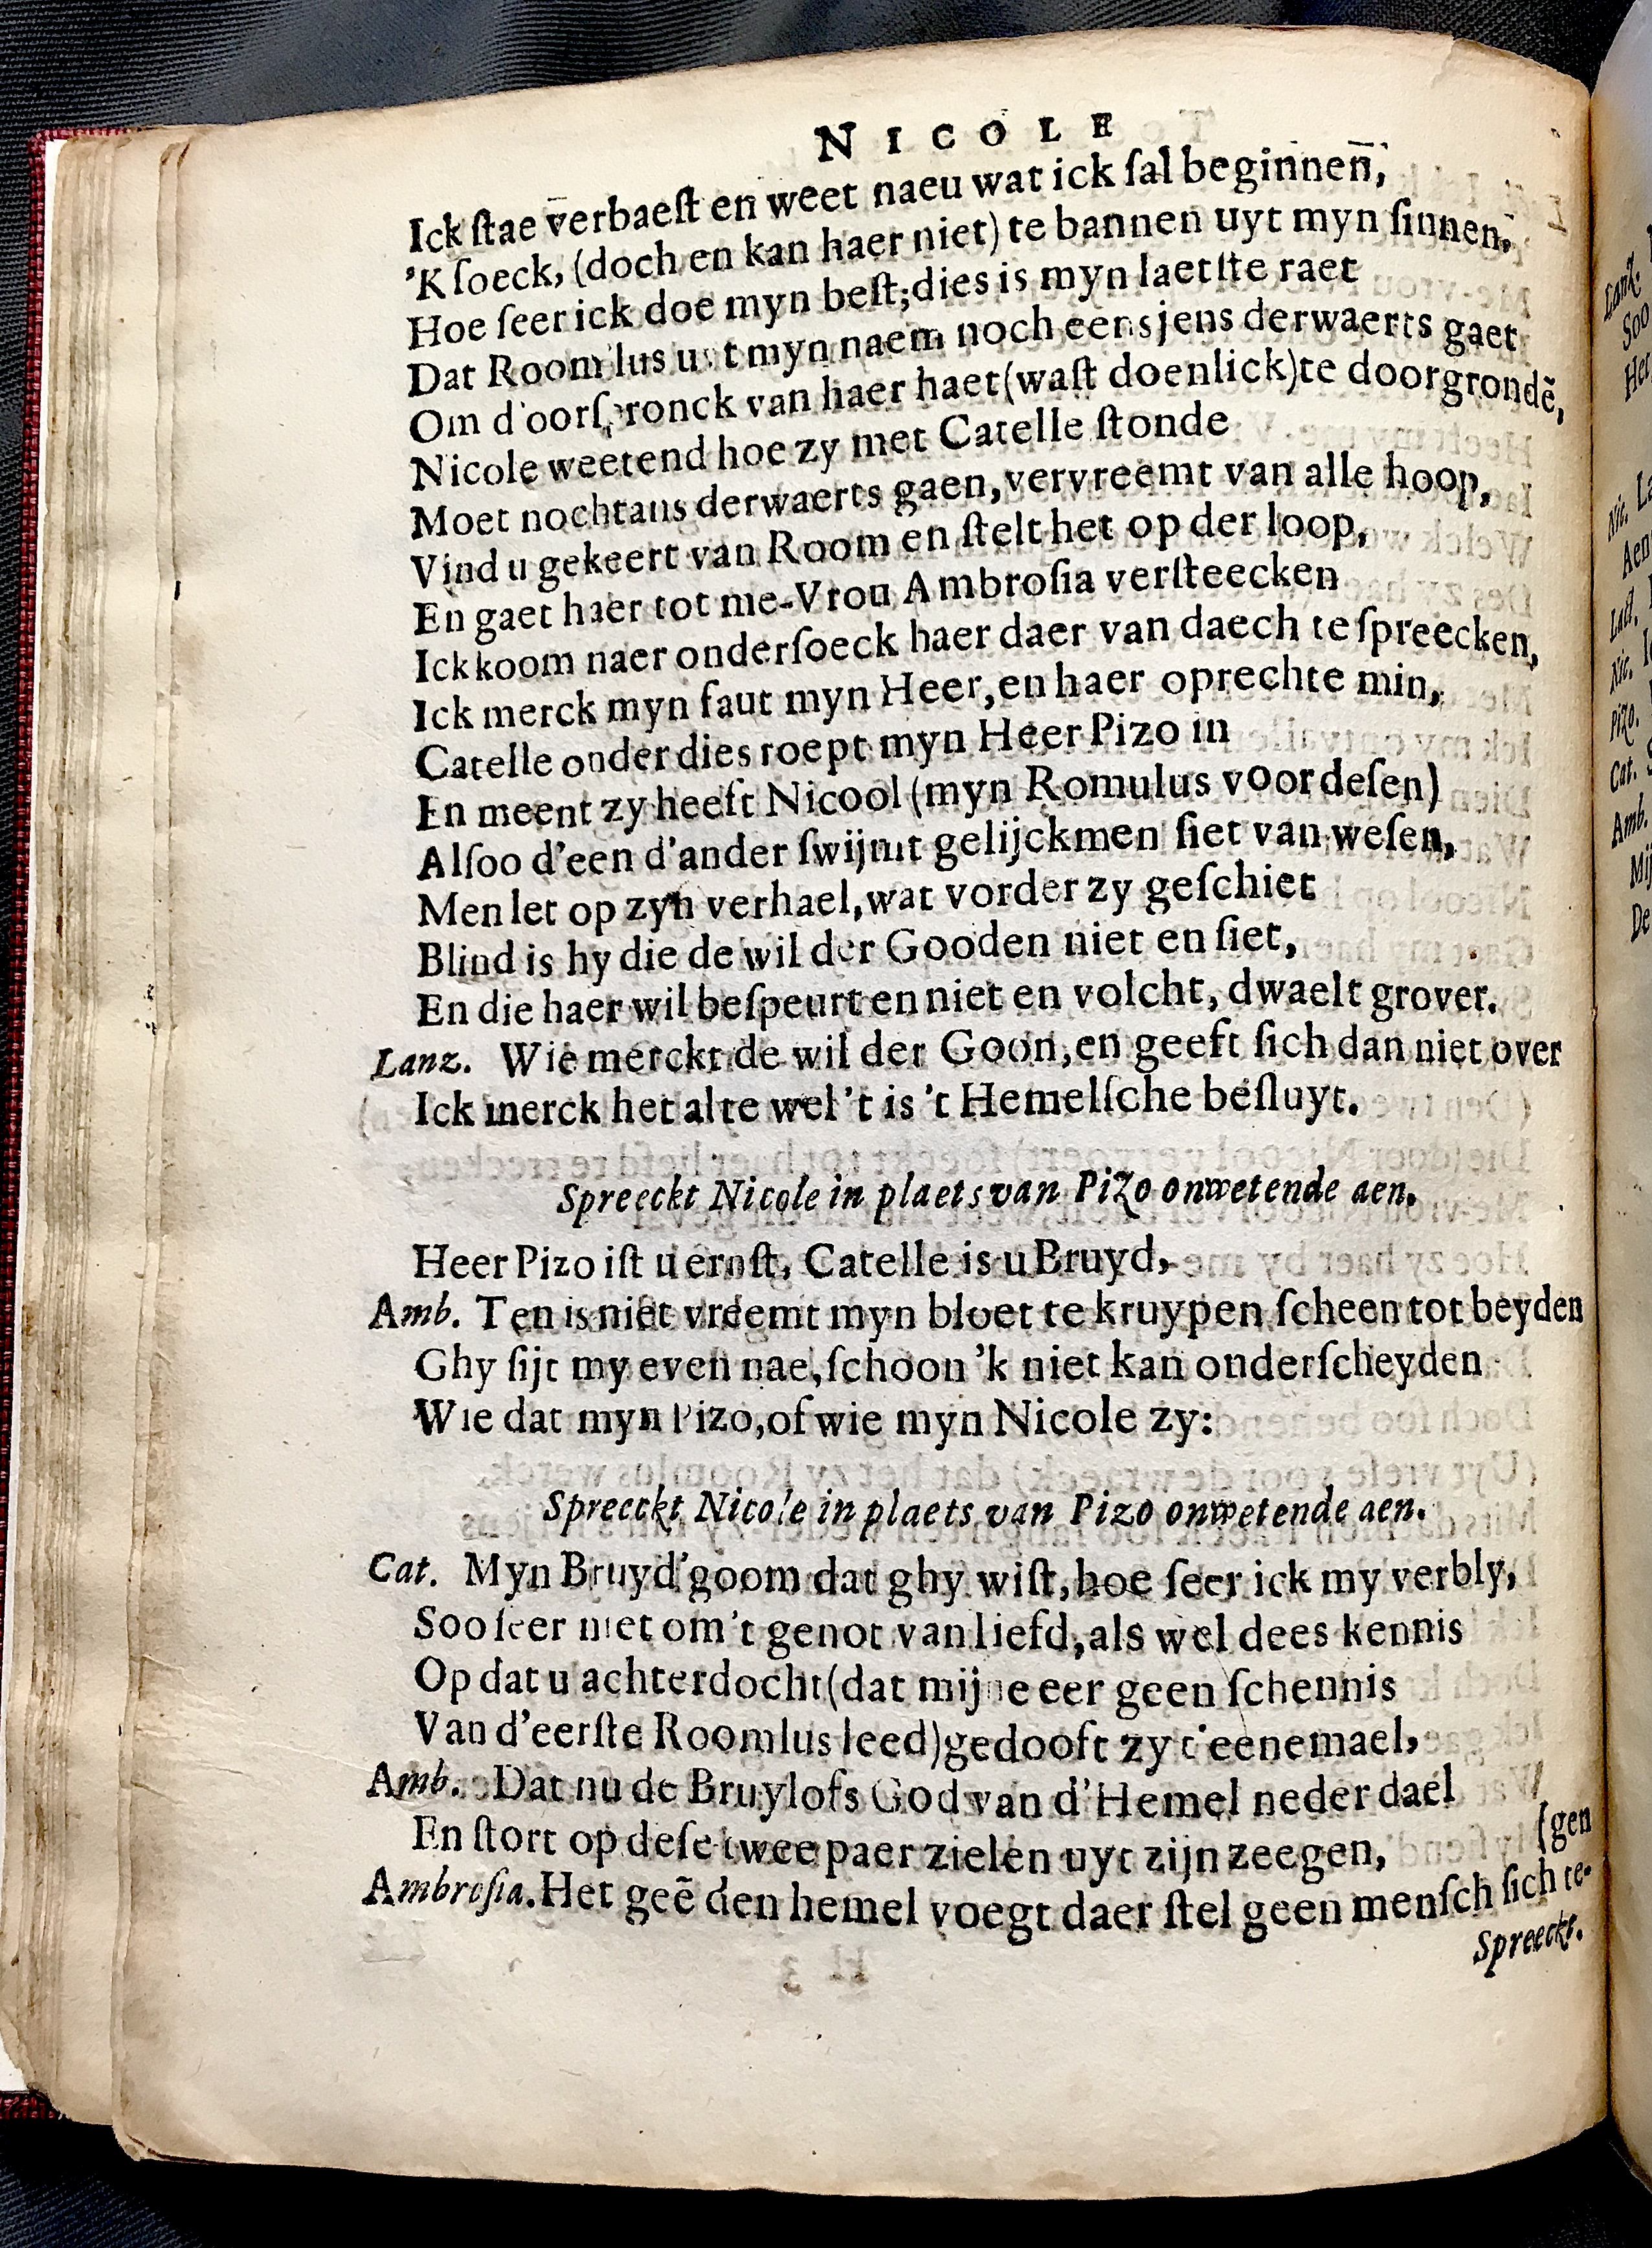 NICOLE
Ick ſtae verbaeſt en weet naeu wat ick ſal beginnen,
'K ſoeck, (doch en kan haer niet) te bannen uyt myn ſinnen,
Hoe ſeer ick doe myn beſt; dies is myn laetſte raet
Dat Room'lus uyt myn naem noch eensjens derwaerts gaet
Om d'oorſpronck van haer haet (waſt doenlick) te doorgrondẽ,
Nicole weetend hoe zy met Catelle ſtonde
Moet nochtans derwaerts gaen, vervreemt van alle hoop,
Vind u gekeert van Room en ſtelt het op der loop,
En gaet haer tot me-Vrou Ambroſia verſteecken
Ick koom naer onderſoeck haer daer van daech te ſpreecken,
Ick merck myn faut myn Heer, en haer oprechte min,
Catelle onder dies roept myn Heer Pizo in
En meent zy heeft Nicool (myn Romulus voor deſen)
Alſoo d'een d'ander ſwijmt gelijckmen ſiet van weſen,
Men let op zyn verhael, wat vorder zy geſchiet
Blind is hy die de wil der Gooden niet en ſiet,
En die haer wil beſpeurt en niet en volcht, dwaelt grover.
Lanz. Wie merckt de wil der Goon, en geeft ſich dan niet over
Ick merck het al te wel 't is 't Hemelſche beſluyt.
Spreeckt Nicole in plaets van Pizo onwetende aen.
Heer Pizo iſt u ernſt, Catelle is u Bruyd,
Amb. Ten is niet vreemt myn bloet te kruypen ſcheen tot beyden
Ghy ſijt my even nae, ſchoon 'k niet kan onderſcheyden
Wie dat myn Pizo, of wie myn Nicole zy:
Spreeckt Nicole in plaets van Pizo onwetende aen.
Cat. Myn Bruyd'goom dat ghy wiſt, hoe ſeer ick my verbly,
Soo ſeer niet om 't genot van liefd, als wel dees kennis
Op dat u achterdocht (dat mijne eer geen ſchennis
Van d'eerſte Roomlus leed) gedooft zy t'eenemael,
Amb. Dat nu de Bruylofs God van d'Hemel neder dael
En ſtort op deſe twee paer zielen uyt zijn zeegen,
(gen
Ambroſia. Het geẽ den hemel voegt daer ſtel geen menſch ſich te-
Spreeckt.